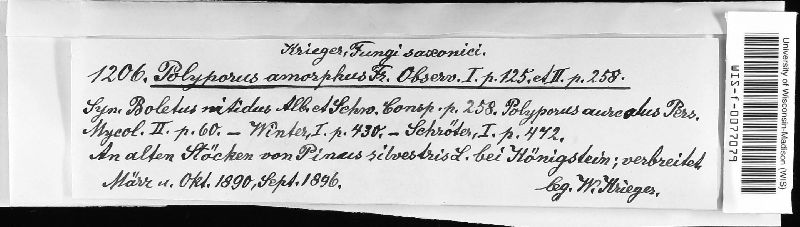 Krieger, Fungi saxonici.
1206. Polyporus amorphus Fr. Observ. I. p. 125. et II. p. 258.
Syn. Boletus nitidus Alb. et Schw. Consp. p. 258. Polyporus aureolus Pers.
Mycol. II. p. 60. — Winter, I. p. 430. — Schröter, I. p. 472.
An alten Stöcken von Pinus silvestris L. bei Königstein; verbreitet
März u. Okt. 1890, Sept. 1896.
lg. W. Krieger.
University of Wisconsin-Madison (WIS)
WIS-f-0077079